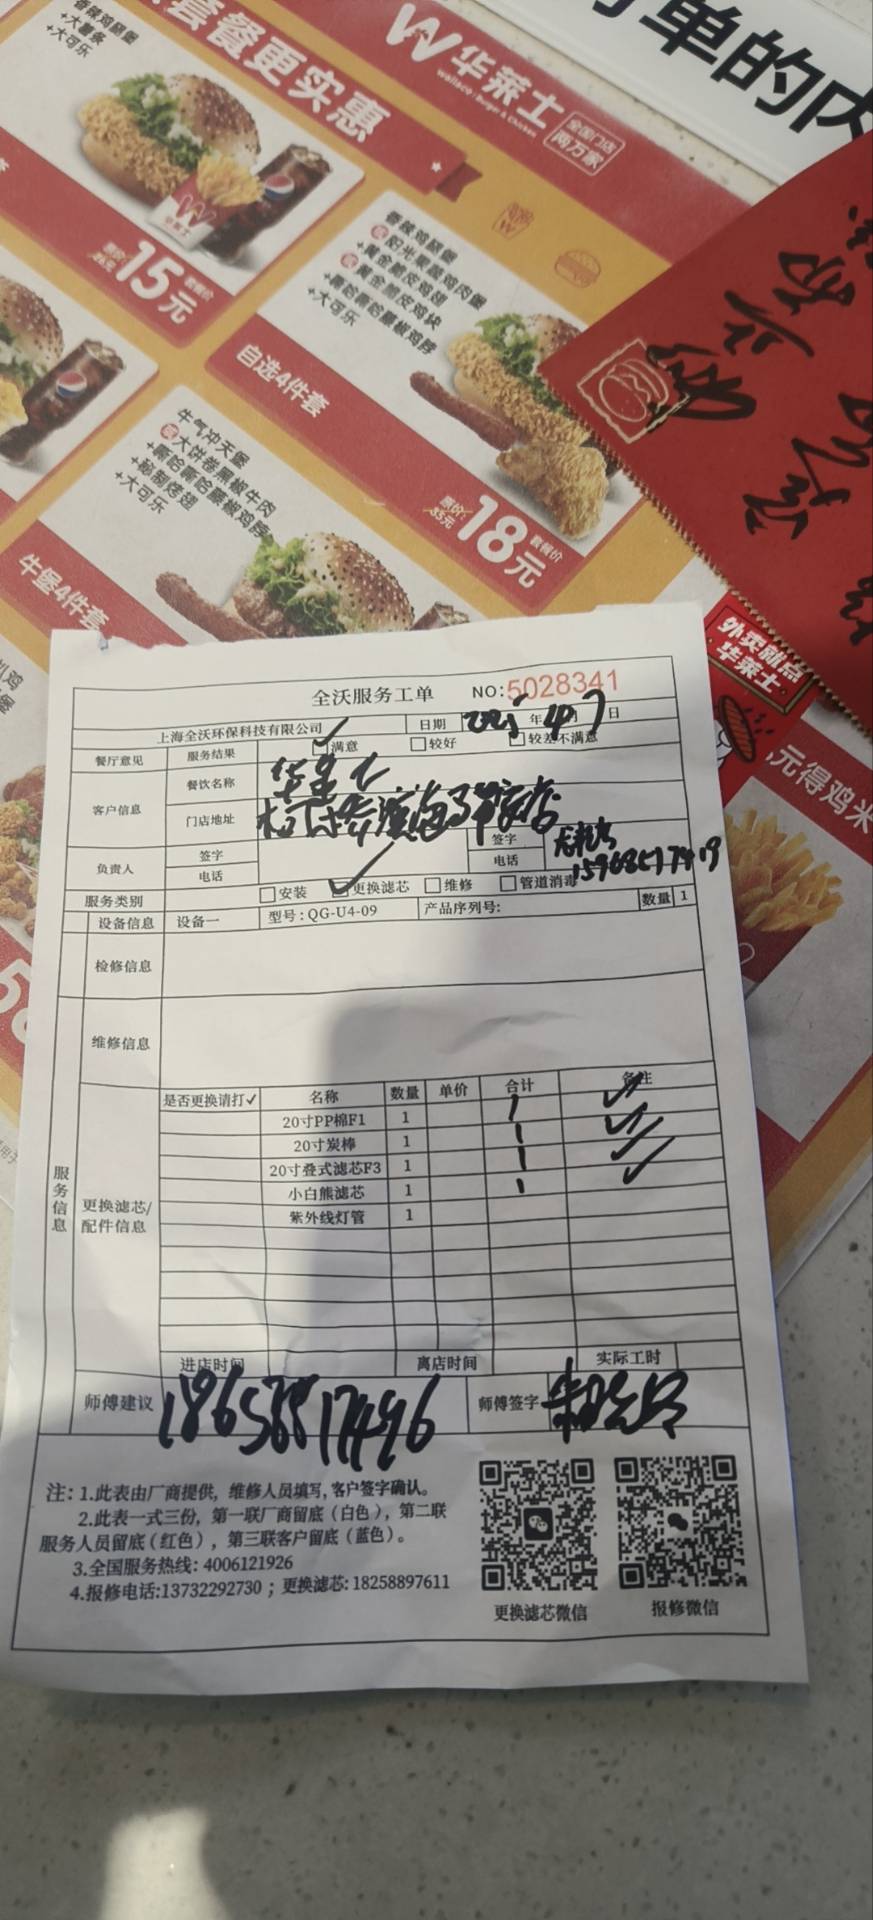 香辣鸡腿堡
+大薯条
+大可乐
套餐更实惠
华莱士
Wallace · Burger & Chicken
全国门店
两万家
单的内
15元
套餐价
香辣鸡腿堡
+黄金脆皮鸡翅
+黄金脆皮鸡块
+嘶哈嘶哈藤椒鸡脖
+大可乐
自选4件套
原价:
35元
18元
套餐价
牛气冲天堡
大饼卷黑椒牛肉
+嘶哈嘶哈藤椒鸡脖
+秘制烤翅
+大可乐
牛堡4件套
外卖就点
华莱士
元得鸡米
全沃服务工单 NO:5028341
上海全沃环保科技有限公司 日期 年 7 日
餐厅意见 服务结果 ✓满意 □较好 □较差不满意
客户信息 餐饮名称 华莱士
门店地址
负责人 签字 签字
电话 电话
服务类别 □安装 ✓更换滤芯 □维修 □管道消毒
设备信息 设备一 型号:QG-U4-09 产品序列号: 数量 1
检修信息
维修信息
服务信息
更换滤芯/
配件信息
是否更换请打✓ 名称 数量 单价 合计 备注
20寸PP棉F1 1 1 ✓
20寸炭棒 1 1 ✓
20寸叠式滤芯F3 1 1 ✓
小白熊滤芯 1 1 ✓
紫外线灯管 1
进店时间 离店时间 实际工时
师傅建议 师傅签字
注: 1.此表由厂商提供, 维修人员填写, 客户签字确认。
2.此表一式三份, 第一联厂商留底(白色), 第二联
服务人员留底(红色), 第三联客户留底(蓝色)。
3.全国服务热线: 4006121926
4.报修电话:13732292730 ; 更换滤芯: 18258897611
更换滤芯微信 报修微信